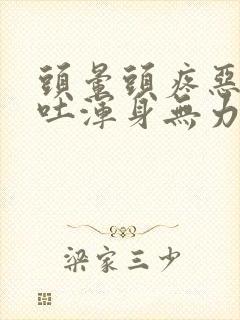 頭暈頭疼惡
吐渾身無力
梁家三少